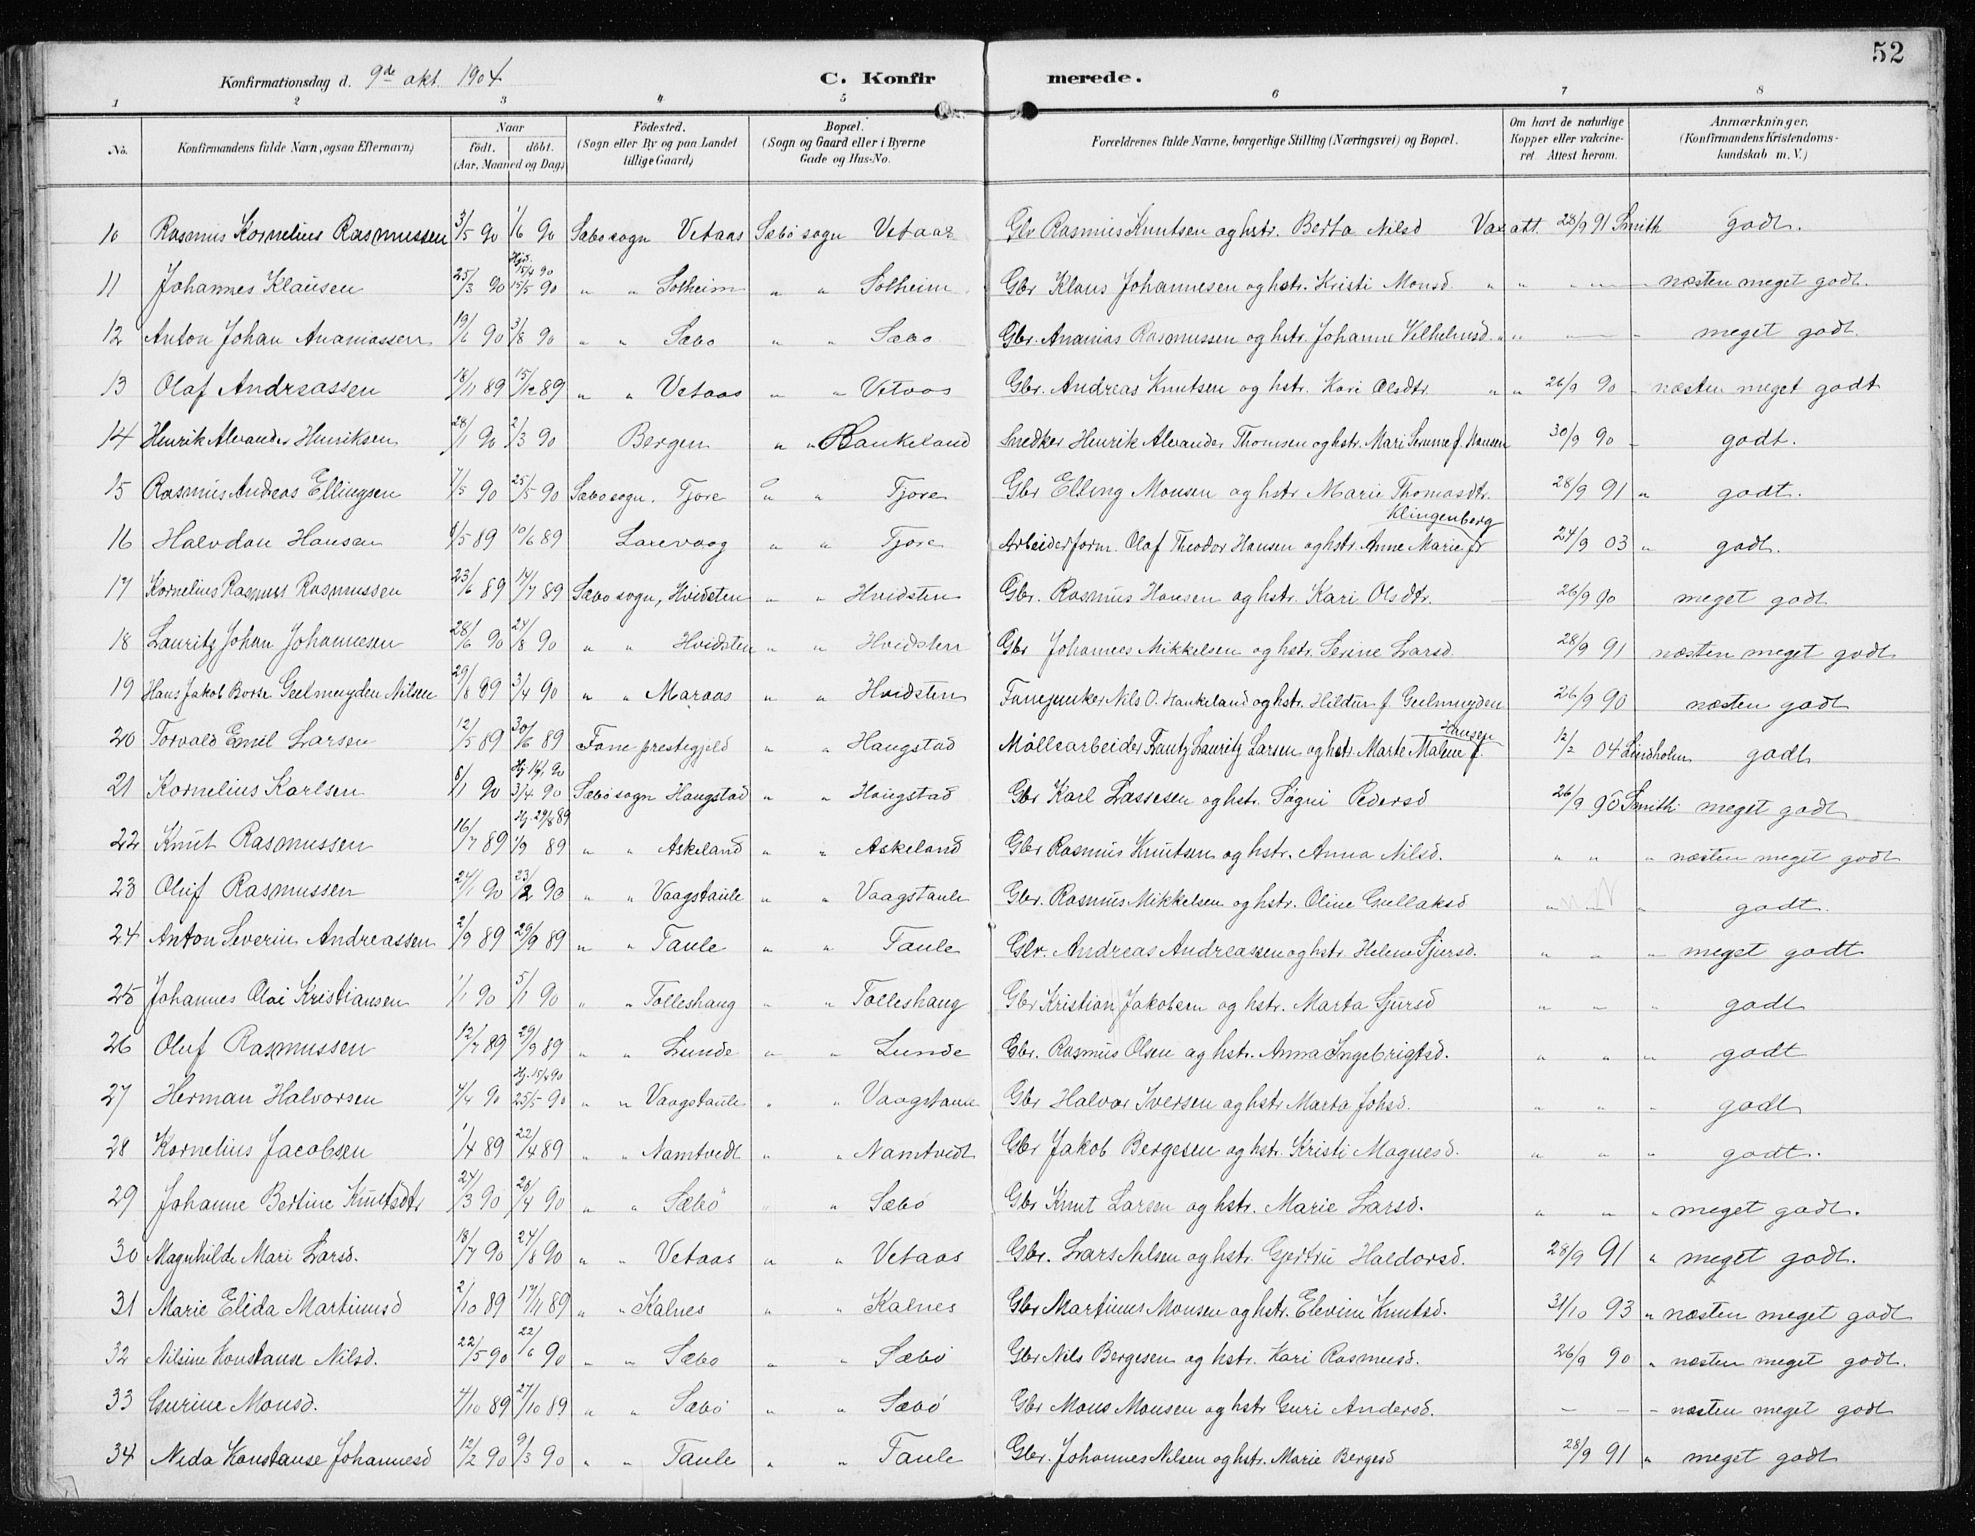 52
Konfirmationsdag d. 9de okt. 1904 C. Konfir merede.
1 2 3 4 5 6 7 8
No. Konfirmandens fulde Navn, ogsaa Efternavn) Naar født. døbt. (Aar, Maaned og Dag) Fødested. (Sogn eller By og paa Landet tillige Gaard) Bopæl. (Sogn og Gaard eller i Byerne Gade og Hus-No. Forældrenes fulde Navne, borgerlige Stilling (Næringsvei) og Bopæl. Om havt de naturlige Kopper eller vakcineret. Attest herom. Anmærkninger. (Konfirmandens Kristendomskundskab m. V.)
10 Rasmus Kornelius Rasmussen 3/5 90 1/6 90 Sæbo sogn Vetaas Sæbö sogn Vetaas Gbr Rasmus Knutsen og hstr. Berta Nilsd Vax att. 28/9 91 Smith godt.
11 Johannes Klausen 25/3 90 Hjd. 15/4 90 15/5 90 " " Solheim " " Solheim Gbr Klaus Johannesen og hstr. Kristi Monsd. " " " — næsten meget godt.
12 Anton Johan Ananiassen 19/6 90 3/8 90 " " Sæbo " " Sæbo Gbr. Ananias Rasmussen og hstr. Johanne Vilhelmsd. " " — " meget godt.
13 Olaf Andreassen 18/11 89 15/12 89 " " Vetaas " " Vetaas Gbr. Andreas Knutsen og hstr. Kari Olsdtr " " 26/9 90 " næsten meget godt
14 Henrik Alexander Henriksen 28/1 90 2/3 90 Bergen " " Hankeland Snedker Henrik Alexander Thomsen og hstr. Mari Serine f. Hansen 30/9 90 " godt.
15 Rasmus Andreas Ellingsen 7/5 90 25/5 90 Sæbo sogn. Tjore " " Tjore Gbr Elling Monsen og hstr Marie Thomasdtr. 28/9 91 " godt.
16 Halvdan Hansen 8/5 89 10/6 89 Laxevaag " " Tjore Arbeiderform. Olaf Theodor Hansen og hstr. Anne Marie f. Klingenberg 24/9 03 " godt.
17 Kornelius Rasmus Rasmussen 23/6 89 14/7 89 Sæbo sogn, Hvidsten " " Hvidsten Gbr. Rasmus Hansen og hstr. Kari Olsdtr. — 26/9 90 meget godt
18 Lauritz Johan Johannesen 28/6 90 24/8 90 " " Hvidsten " " Hvidsten Gbr Johannes Mikkelsen og hstr. Serine Larsd. 28/9 91 næsten meget godt
19 Hans Jakob Geelmuyden Nilsen 29/8 89 3/4 90 " " Maraas " " Hvidsten Fanejunker Nils O. Hankeland og hstr. Hildur f. Geelmuyden 26/9 90 næsten godt
20 Torvald Emil Larsen 12/5 89 30/6 89 Fane prestegjeld " " Haugstad Møllearbeider Frantz Lauritz Larsen og hstr. Marte Malene f. Hansen 12/2 04 Lindholm godt
21 Kornelius Karlsen 8/1 90 Hj. 19/1 90 3/4 90 Sæbö sogn Haugstad " " Haugstad Gbr Karl Lassesen og hstr. Søgni Pedersd 26/9 90 Smith meget godt
22 Knut Rasmussen 16/7 89 Hj. 29/8 89 1/9 89 " " Askeland " " Askeland Gbr Rasmus Knutsen og hstr. Anna Nilsd. " " " næsten meget godt
23 Oluf Rasmussen 24/1 90 23/2 90 " " Vaagstaule " " Vaagstaule Gbr. Rasmus Mikkelsen og hstr. Oline Gullaksd " " " godt.
24 Anton Severin Andreassen 2/9 89 29/9 89 " " Taule " " Taule Gbr. Andreas Andreassen og hstr. Helene Sjursd. " " " meget godt
25 Johannes Olai Kristiansen 1/1 90 5/1 90 " " Tolleshaug " " Tolleshaug Gbr Kristian Jakobsen og hstr. Marta Sjursd " " " godt
26 Oluf Rasmussen 12/7 89 29/9 89 " " Lunde " " Lunde Gbr. Rasmus Olsen og hstr. Anna Ingebrigtsd. " " " godt
27 Herman Halvorsen 4/4 90 Hj. 15/4 90 25/5 90 " " Vaagstaule " " Vaagstaule Gbr Halvor Iversen og hstr Marta Johsd. " " " godt
28 Kornelius Jacobsen 1/4 89 22/4 89 " " Namtvedt " " Namtvedt Gbr Jakob Bergesen og hstr. Kristi Magnesd. " " " godt.
29 Johanne Bertine Knutsdtr 24/3 90 20/4 90 " " Sæbö " " Sæbö Gbr Knut Larsen og hstr. Marie Larsd. " " " meget godt.
30 Magnhilde Mari Larsd. 18/7 90 24/8 90 " " Vetaas " " Vetaas Gbr. Lars Nilsen og hstr. Gjertru Haldorsd. 28/9 91 " meget godt.
31 Marie Elida Martinusd 2/10 89 17/11 89 " " Kalnes " " Kalnes Gbr Martinus Monsen og hstr. Elevine Knutsd. 31/10 93 " næsten meget godt
32 Nilsine Konstanse Nilsd. 22/5 90 22/6 90 " " Sæbo " " Sæbö Gbr Nils Bergesen og hstr. Kari Rasmusd. 26/9 90 " næsten meget godt.
33 Gurine Monsd. 4/10 89 27/10 89 " " Sæbö " " Sæbö Gbr Mons Monsen og hstr Guri Andersd. — — — næsten meget godt
34 Neda Konstanse Johannesd 12/2 90 9/3 90 " " Taule " " Taule Gbr. Johannes Nilsen og hstr. Marie Bergesd 28/9 91 " meget godt